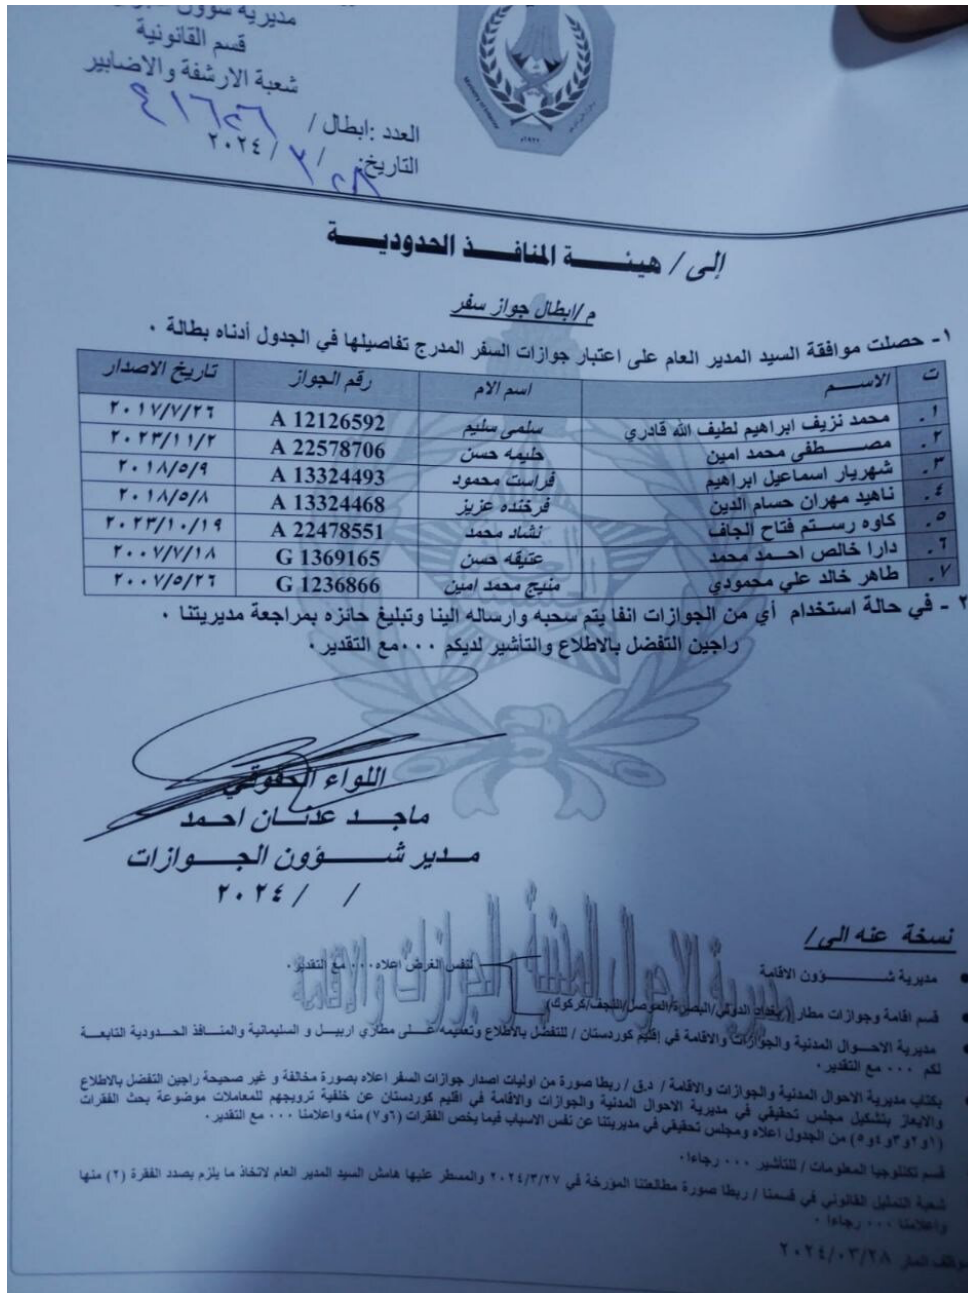 مديرية شؤون
قسم القانونية
شعبة الارشفة والاضابير
العدد :ابطال / ٤١٦٢٦
التاريخ: ٢٨ / ٣ / ٢٠٢٤
إلى / هيئــــة المنافــــذ الحدوديــــة
م/ابطال جواز سفر
١- حصلت موافقة السيد المدير العام على اعتبار جوازات السفر المدرج تفاصيلها في الجدول أدناه بطالة .
ت الاســـم اسم الام رقم الجواز تاريخ الاصدار
١. محمد نزيف ابراهيم لطيف الله قادري سلمى سليم A 12126592 ٢٠١٧/٧/٢٦
٢. مصـــطفى محمد امين حليمه حسن A 22578706 ٢٠٢٣/١١/٢
٣. شهريار اسماعيل ابراهيم فراست محمود A 13324493 ٢٠١٨/٥/٩
٤. ناهيد مهران حسام الدين فرخنده عزيز A 13324468 ٢٠١٨/٥/٨
٥. كاوه رســـتم فتاح الجاف نشاد محمد A 22478551 ٢٠٢٣/١٠/١٩
٦. دارا خالص احـــمد محمد عتيقه حسن G 1369165 ٢٠٠٧/٧/١٨
٧. طاهر خالد علي محمودي منيج محمد امين G 1236866 ٢٠٠٧/٥/٢٦
٢ - في حالة استخدام أي من الجوازات انفا يتم سحبه وارساله الينا وتبليغ حائزه بمراجعة مديريتنا .
راجين التفضل بالاطلاع والتأشير لديكم ٠٠٠مع التقدير.
اللواء الحقوقي
ماجـــد عدنـــان احمـــد
مـــدير شـــــؤون الجـــوازات
/ / ٢٠٢٤
مديرية الاحوال المدنية والجوازات والاقامة
نسخة عنه الى/
مديرية شـــــــــؤون الاقامة
لنفس الغرض اعلاه ٠٠٠ مع التقدير.
قسم اقامة وجوازات مطار ( بغداد الدولي/البصرة/الموصل/النجف/كركوك)
مديرية الاحـــوال المدنية والجوازات والاقامة في إقليم كوردستان / للتفضل بالاطلاع وتعميمه عـــلى مطاري اربيـــل و السليمانية والمنـــافذ الحـــدودية التابعـــة
لكم ٠٠٠ مع التقدير.
بكتاب مديرية الاحوال المدنية والجوازات والاقامة / د.ق / ربطا صورة من اوليات اصدار جوازات السفر اعلاه بصورة مخالفة و غير صحيحة راجين التفضل بالاطلاع
والايعاز بتشكيل مجلس تحقيقي في مديرية الاحوال المدنية والجوازات والاقامة في اقليم كوردستان عن خلفية ترويجهم للمعاملات موضوعة بحث الفقرات
(١و٢و٣و٤و٥) من الجدول اعلاه ومجلس تحقيقي في مديريتنا عن نفس الاسباب فيما يخص الفقرات (٦و٧) منه واعلامنا ٠٠٠ مع التقدير.
قسم تكنلوجيا المعلومات / للتأشير ٠٠٠ رجاءا.
شعبة التمثيل القانوني في قسمنا / ربطا صورة مطالعتنا المؤرخة في ٢٠٢٤/٣/٢٧ والمسطر عليها هامش السيد المدير العام لاتخاذ ما يلزم بصدد الفقرة (٢) منها
واعلامنا ٠٠٠ رجاءا .
٢٠٢٤/٠٣/٢٨